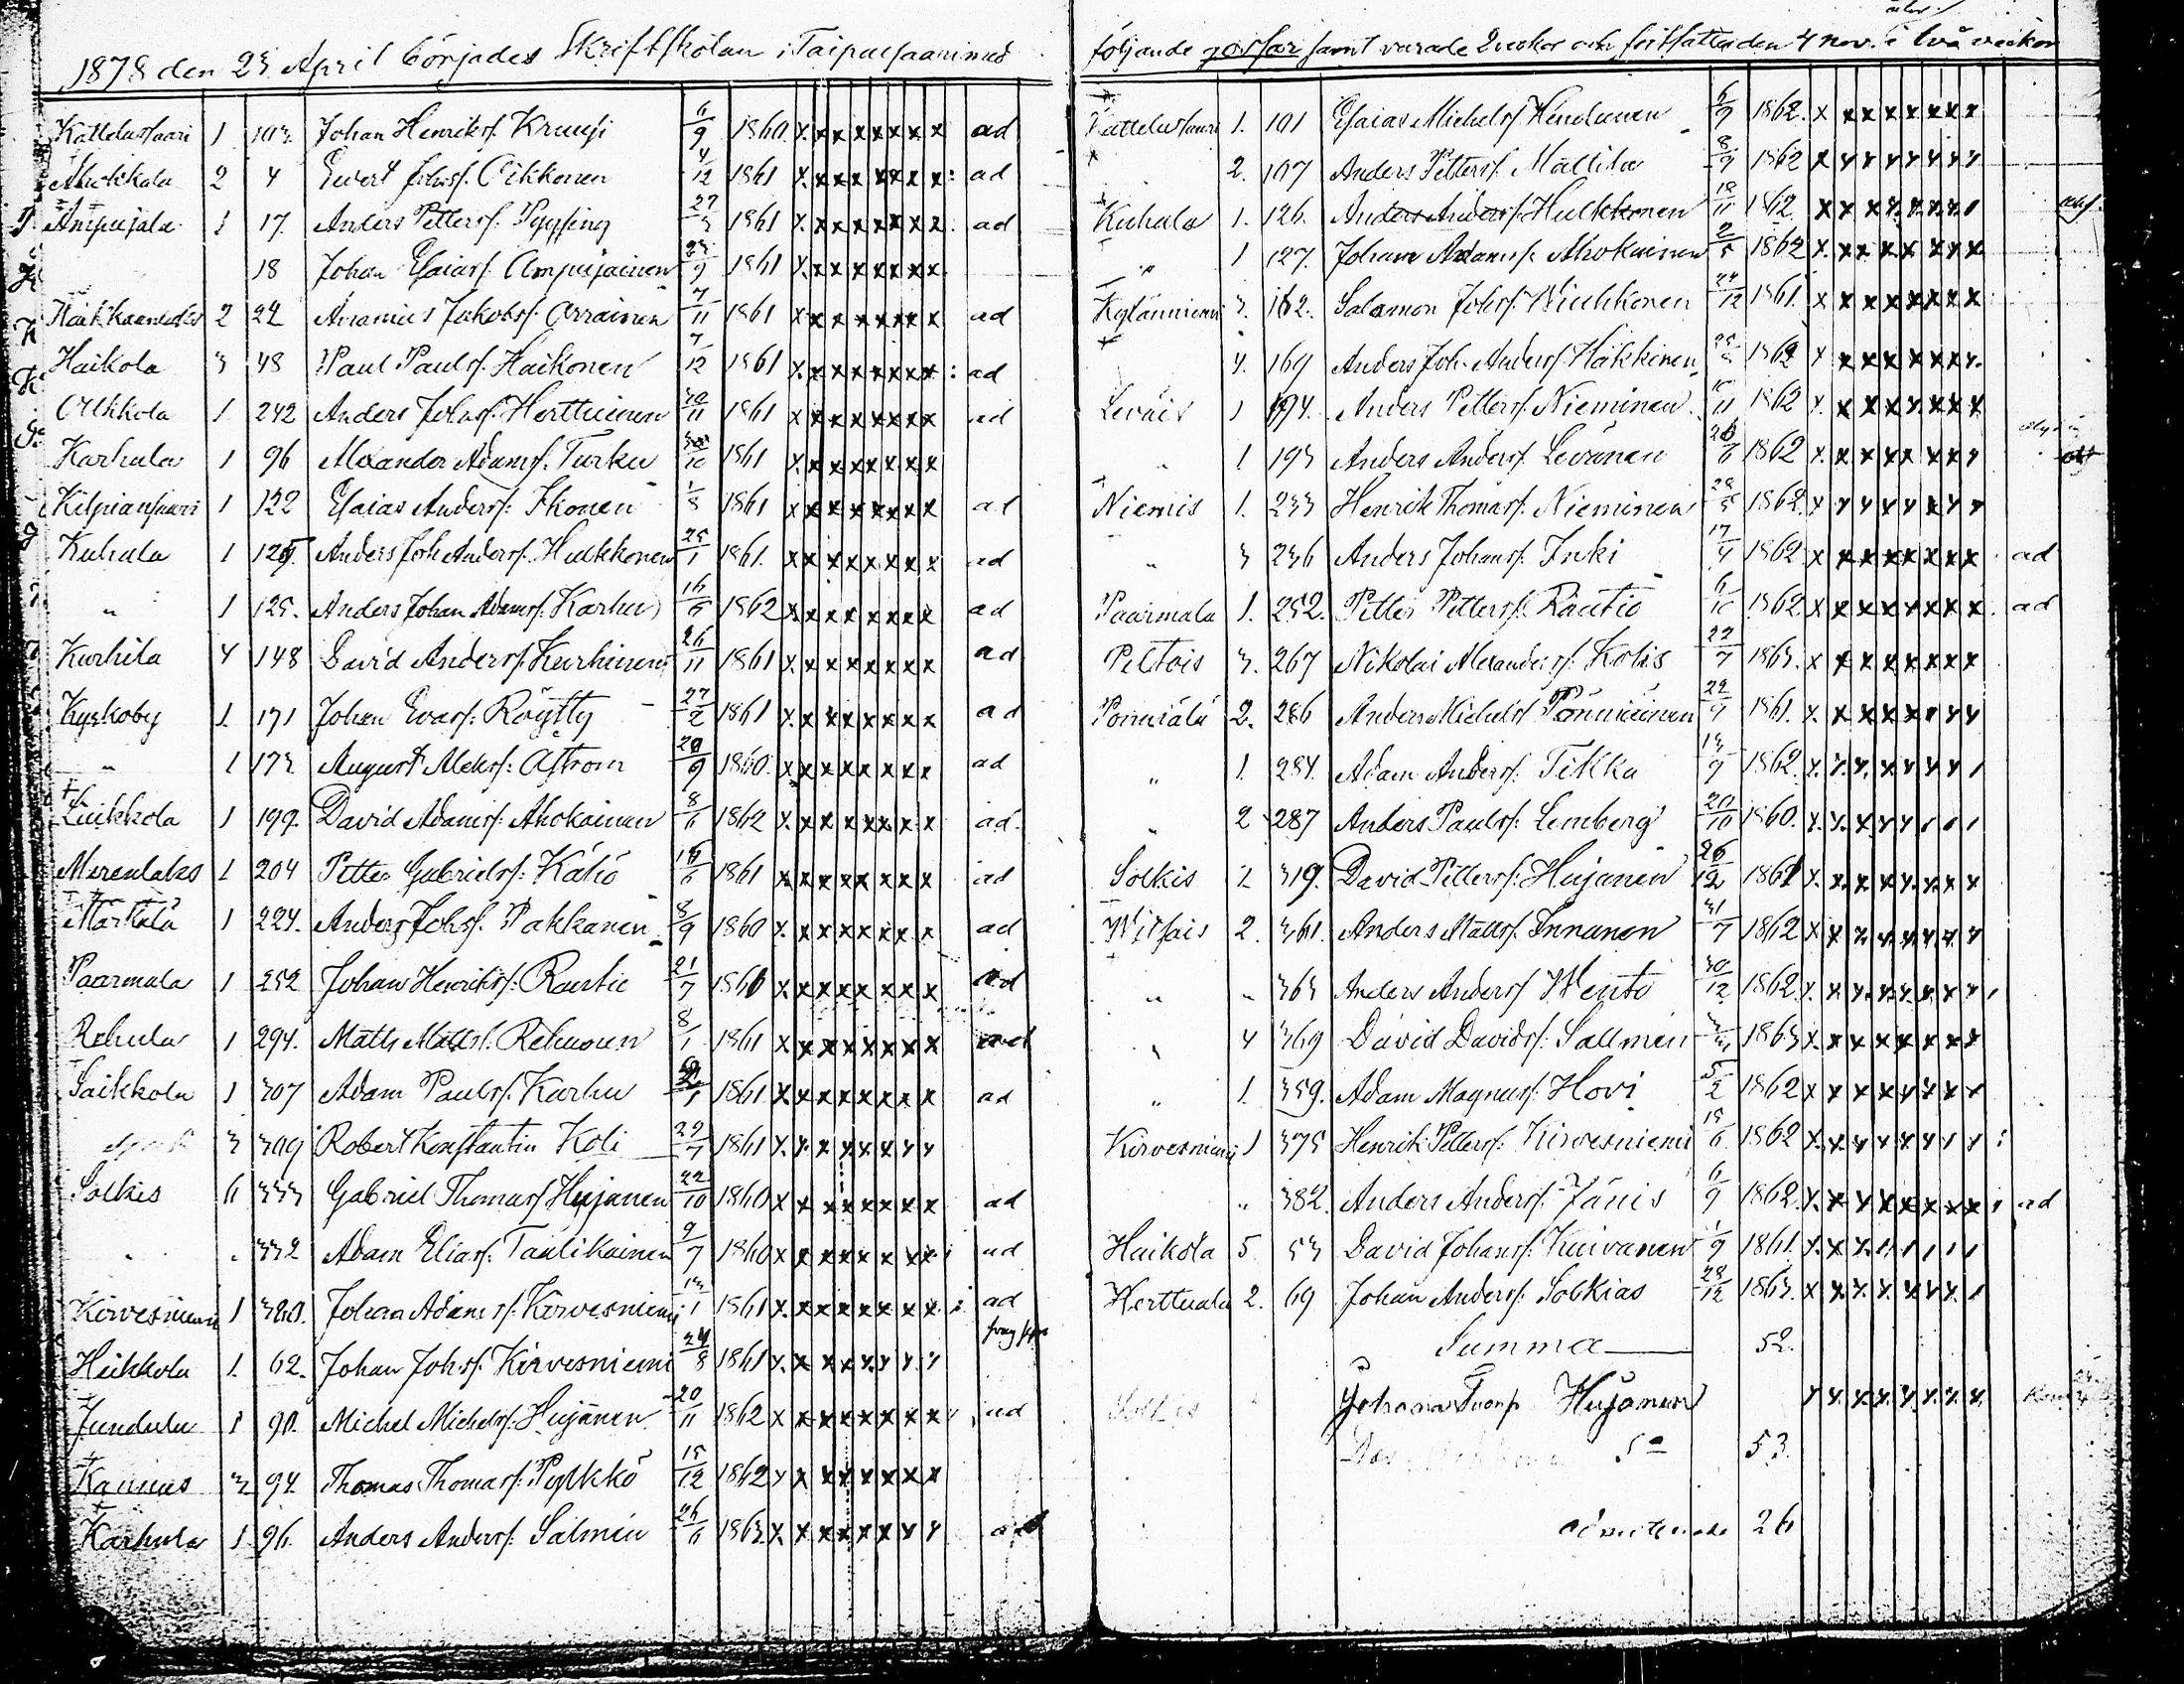 1878 den 23 April börjades Skriftskolan i Taipalsaari med
Kattelussaari 1 103. Johan Henrikss. Kruusi 6/9 1860. x x x x x x x x ad
Ahokkala 2 4 Evert Johss. Oikkonen 4/12 1861 x x x x x x x x : ad
Ampujala 1 17. Anders Petterss. Pyysing 27/3 1861 x x x x x x x x ad
18 Johan Esaiass. Ampujainen 23/9 1861 x x x x x x x x
2 22 Avramius Jakobss. Arrainen 7/11 1861 x x x x x x x x ad
Haikola 3 48 Paul Paulss. Haikonen 7/12 1861 x x x x x x x x : ad
Olkkola 1 242 Anders Johss. Herttuinen 30/11 1861 x x x x x x x x ad
Karhula 1 96 Alexander Adamss. Turku 30/10 1861 x x x x x x x x
Kilpiansaari 1 122 Esaias Anderss. Ikonen 1/8 1861 x x x x x x x x ad
Kuhala 1 Anders Joh Anderss. Hulkkonen 25/1 1861. x x x x x x x x ad
" 1 125. Anders Johan Adamss. Karhu 16/6 1862 x x x x x x x x ad
Kurhila 4 148 David Anderss. Kurhinen 26/11 1861 x x x x x x x x ad
Kyrkoby 1. 171 Johan Evass. Röytty 27/2 1861 x x x x x x x x ad
" 1 173. August Alekss. Åström 29/9 1860. x x x x x x x x ad
Luikkola 1 199. David Adamss. Ahokainen 8/6 1862 x x x x x x x x ad.
Merenlaks 1 204 Petter Gabrielss. Kähö 1861 x x x x x x x x ad
Märkälä 1 224. Anders Johss. Pakkanen 8/9 1860 x x x x x x x x ad
Paarmala 1 252 Johan Henrikss. Rautio 21/7 1860 x x x x x x x x ad
Rehula 1 294. Matts Mattss. Rehunen 8/1 1861 x x x x x x x x ad
Saikkola 1 307 Adam Paulss. Karhu 1861 x x x x x x x x ad
3 309 Robert Konstantin Koli 29/7 1861 x x x x x x x x
Solkis 6 333 Gabriel Thomass. Hujanen 22/10 1860 x x x x x x x x ad
" " 332 Adam Eliass. Taalikainen 9/7 1860 x x x x x x x x ad
Kirvesniemi 1 380. Johan Adamss. Kirvesniemi 13/1 1861 x x x x x x x x : ad
Heikkola 1. 62. Johan Johss. Kirvesniemi 24/8 1861 x x x x x x x x
Jundula 1 90. Michel Michelss. Hujanen 20/11 1862 x x x x x x x x ad
Kannus 3 94 Thomas Thomass. Pylkkö 15/12 1862 x x x x x x x x
Karhula 1 96. Anders Anderss. Salmén 26/6 1863. x x x x x x x x ad
följande gossar samt varade 2 veckor och fortsattes den 4 nov. i två veckor
Kattelussaari 1. 101 Esaias Michelss. 6/9 1862. x x x x x x x x
2. 107 Anders Petterss. Mällilä 8/9 1862 x x x x x x x x
Kuhala 1. 126. Anders Anderss. Hulkkonen 18/11 1862. x x x x x x x x
" 1 127. Johan Adamss. Ahokainen 1862 x x x x x x x x
Kylänniemi 3. 162. Salamon Johss. Wiikkonen 24/12 1861. x x x x x x x x
4. 169 Anders Joh. Anderss. Häkkinen 1862 x x x x x x x x
Leväis 1 194. Anders Petterss. Nieminen 1862 x x x x x x x x
" 1 193 Anders Anderss. Levänen 26/6 1862 x x x x x x x x
Niemis 1. 233 Henrik Thomass. Nieminen 1862. x x x x x x x x
" 3 236 Anders Johanss. Inki 17/4 1862 x x x x x x x x ad
Paarmala 1. 252. Petter Petterss. Rautio 6/10 1862. x x x x x x x x ad
Peltois 3. 267 Nikolai Alexanderss. Kolis 22/7 1863. x x x x x x x x
Pönniälä 2. 286 Anders Michelss. Pönniäinen 22/9 1861. x x x x x x x x
" 1. 284. Adam Anderss. Tikka 13/9 1862. x x x x x x x
" 2 287 Anders Paulss. Lemberg 20/10 1860. x x x x x
Solkis 2 319. David Petterss. Hujanen 26/12 1861 x x x x x x x x
Witsais 2. 361. Anders Mattss. Innanen 31/7 1862 x x x x x x x x
" " 363 Anders Anderss. Wento 30/12 1862. x x x x x x x x
" 4 369 David Davidss. Sallmén 1863 x x x x x x x x
" 1. 359. Adam Magnuss. Hovi 5/2 1862 x x x x x x x x
Kirvesniemi 1 375 Henrik Petterss. Kirvesniemi 15/6 1862 x x x x x x x x :
" 382. Anders Anderss. Jänis 6/9 1862. x x x x x x x x ad
Haikola 5. 53 David Johanss. Kuivanen 1/9 1861. x x x
Herttuala 2. 69 Johan Anderss. Solkias 28/12 1863. x x x x x x x
Summa 52.
Solkis Johan Hujanen x x x x x x x x
53.
admitterade 26